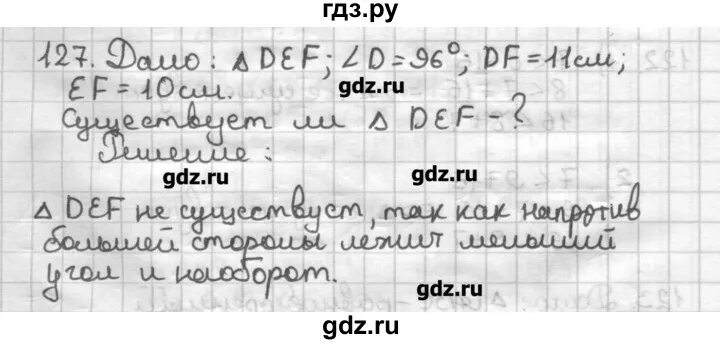 гдз.ру
127. Дано: △ DEF; ∠D=96°; DF=11см;
EF=10см.
gdz.ru
Существует ли △ DEF-?
Решение:
gdz.ru
gdz.ru
△ DEF не существует, так как напротив
большей стороны лежит меньший
угол и наоборот.
gdz.ru
gdz.ru